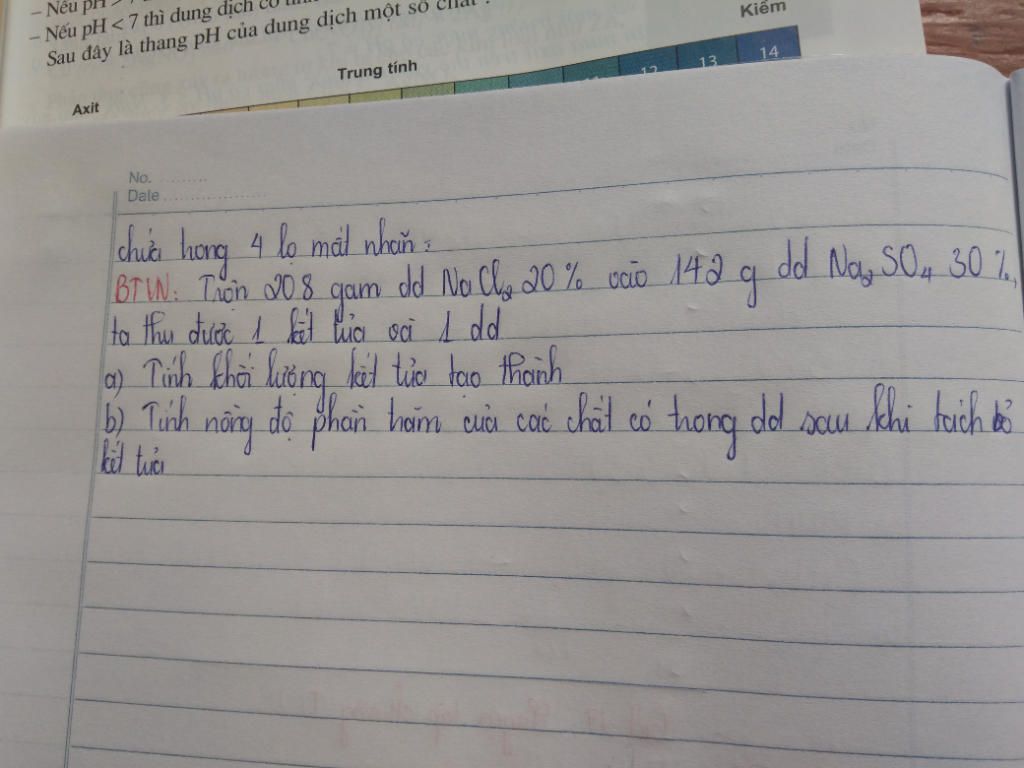 – Nếu pH >
– Nếu pH < 7 thì dung dịch có
Sau đây là thang pH của dung dịch một số chất
Kiềm
Trung tính
Axit
12 13 14
No. .........
Date ...................
chứa trong 4 lọ mất nhãn:
BTVN: Trộn 208 gam dd NaCl₂ 20% vào 142 g dd Na₂SO₄ 30%,
ta thu được 1 kết tủa và 1 dd
a) Tính khối lượng kết tủa tạo thành
b) Tính nồng độ phần trăm của các chất có trong dd sau khi tách bỏ
kết tủa